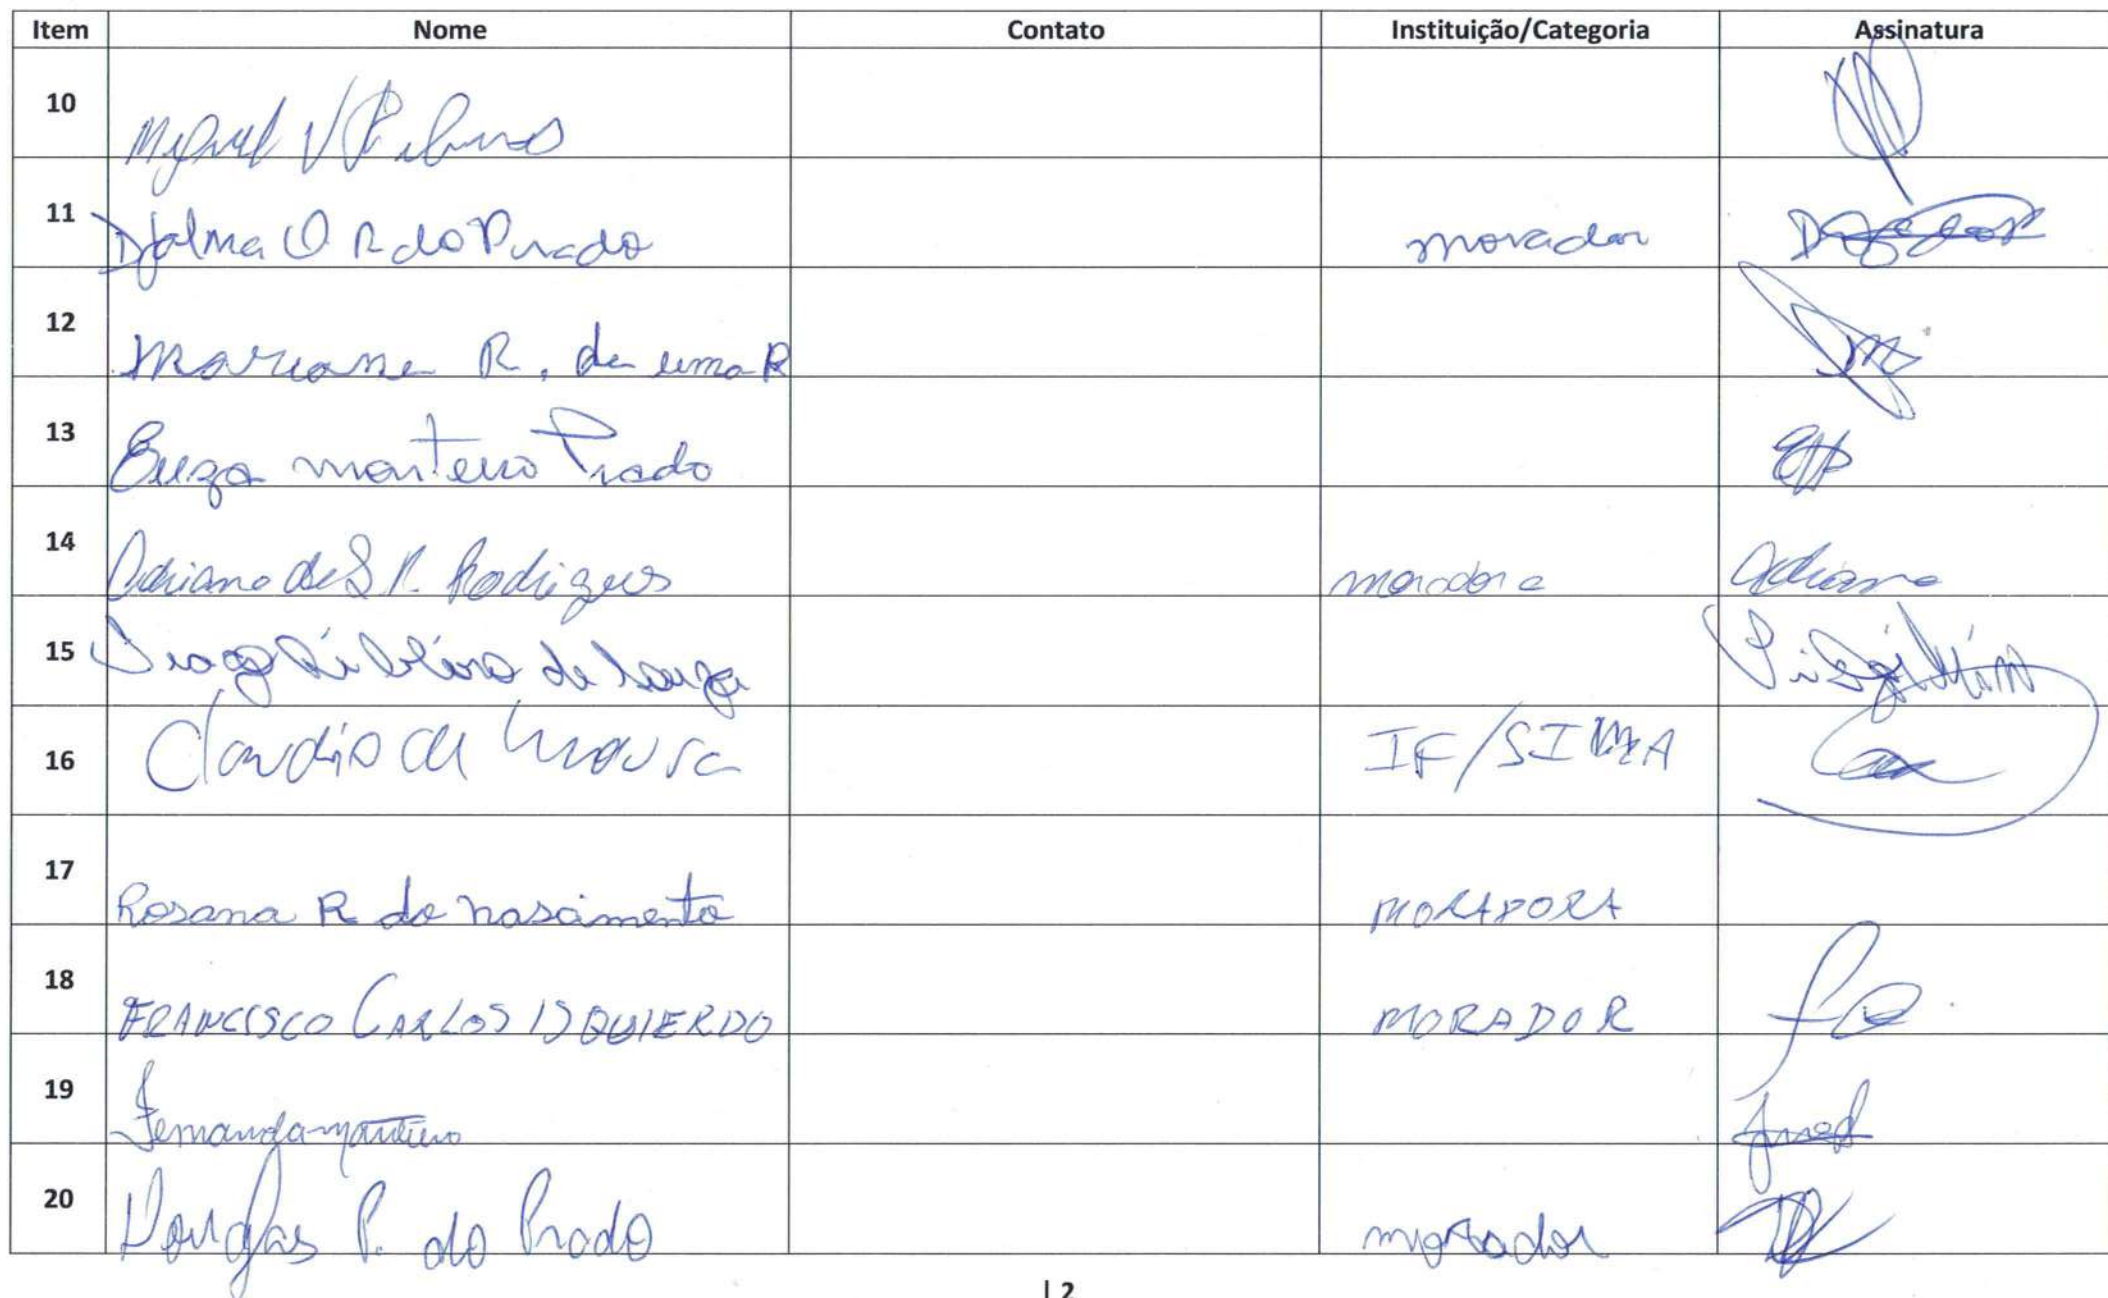 Item Nome Contato Instituição/Categoria Assinatura
10 Miguel V
11 Djalma O R do Prado morador
12 Mariane R. de Lima R
13 monteiro Prado
14 de S R. Rodrigues moradora Adriana
15 de Souza
16 Claudio de Moura IF/SIMA
17 Rosana R do nascimento MORADORA
18 FRANCISCO CARLOS IZQUIERDO MORADOR
19 Fernanda monteiro
20 Douglas P. do Prado morador
| 2